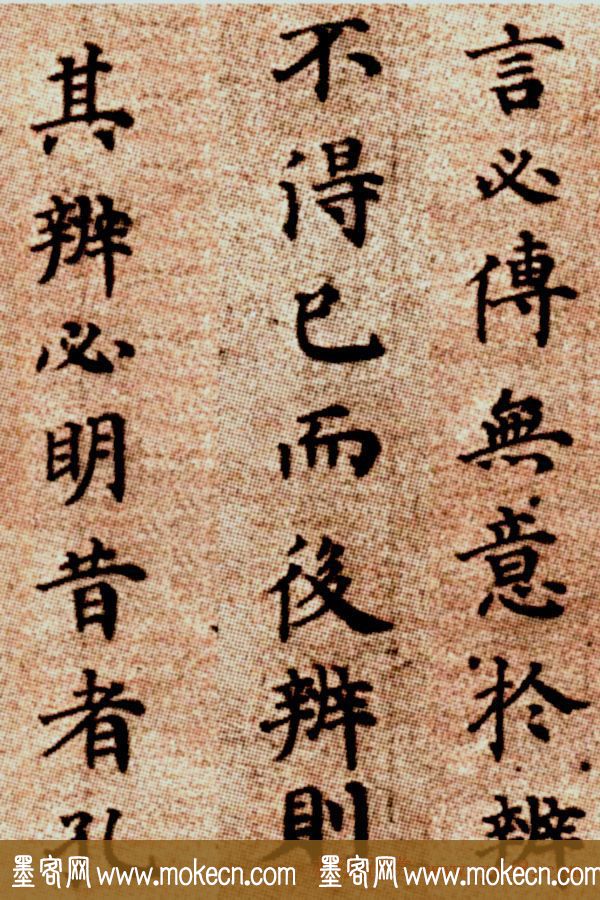 言必傳無意於辨
不得已而後辨則
其辨必明昔者孔
墨客网 www.mokecn.com 墨客网 www.mokecn.com